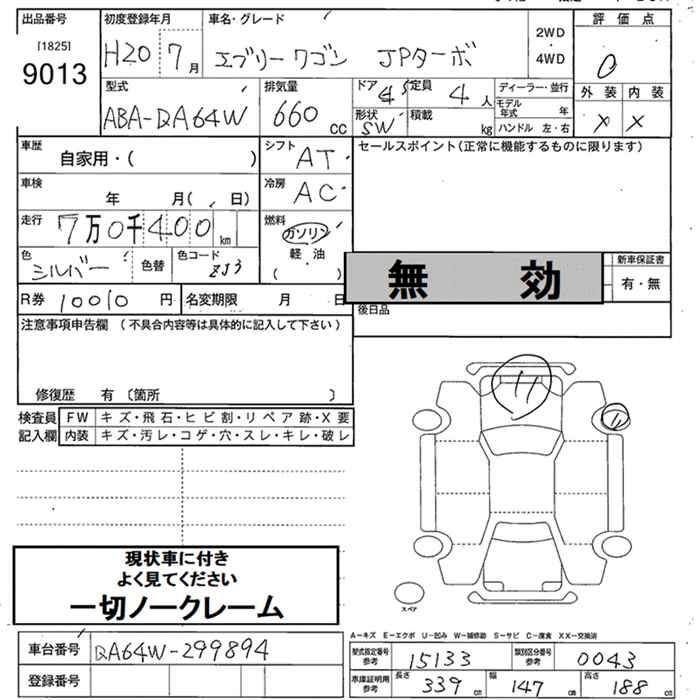 出品番号 初度登録年月 車名・グレード 評価点
[1825]
9013
H20 7月 エブリーワゴン JPターボ
2WD
・
4WD
0
型式 排気量 ドア 定員 ディーラー・並行 外装 内装
ABA-DA64W 660cc 4 4人
モデル年式 年
X X
形状 積載
SW kg ハンドル 左・右
車歴 シフト セールスポイント(正常に機能するものに限ります)
自家用・( ) AT
車検 冷房
年 月( 日) AC
走行 燃料
7万0千400km ガソリン
色 色コード 軽油
シルバー 色替 ZJ3 ( )
新車保証書
無効 有・無
R券 10010円 名変期限 月 日
後日品
注意事項申告欄 (不具合内容等は具体的に記入して下さい)
修復歴 有 〔箇所 〕
検査員 FW キズ・飛石・ヒビ割・リペア跡・X要
記入欄 内装 キズ・汚レ・コゲ・穴・スレ・キレ・破レ
11
現状車に付き
よく見てください
一切ノークレーム
スペア
A-キズ E-エクボ U-凹み W-補修跡 S-サビ C-腐食 XX-交換済
車台番号 DA64W-299894
型式指定番号 参考 15133 類別区分番号 参考 0043
登録番号
車庫証明用 参考 長さ 339cm 幅 147cm 高さ 188cm